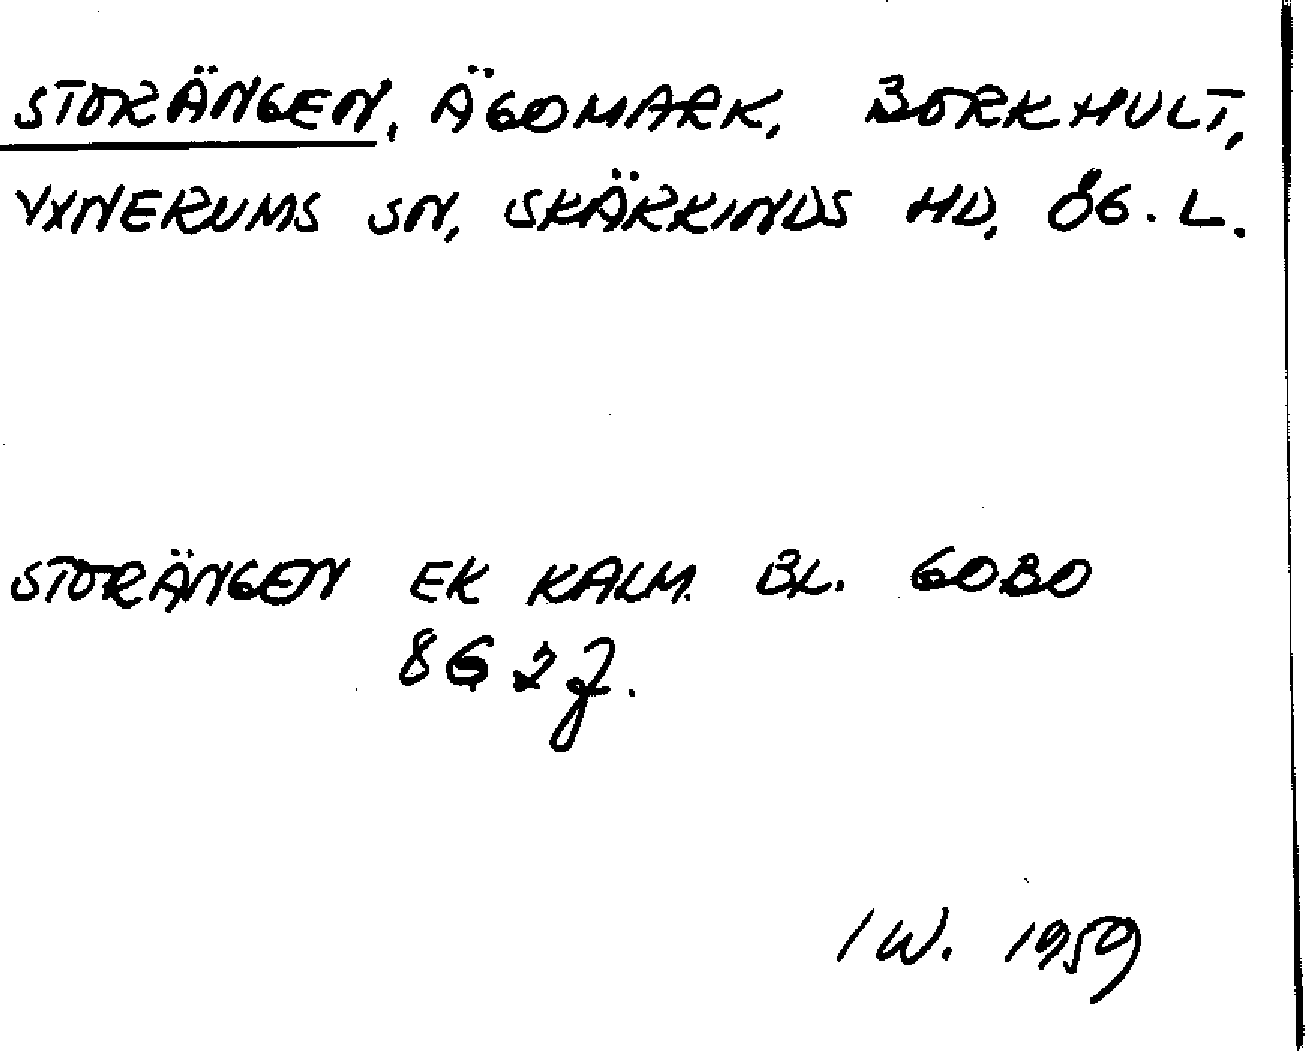 STORÄNGEN, ÄGOMARK, BORKHULT,
YXNERUMS SN, SKÄRKINDS HD, ÖG. L.
STORÄNGEN EK KALM. BL. GOBO
8G 2j.
IW. 1959